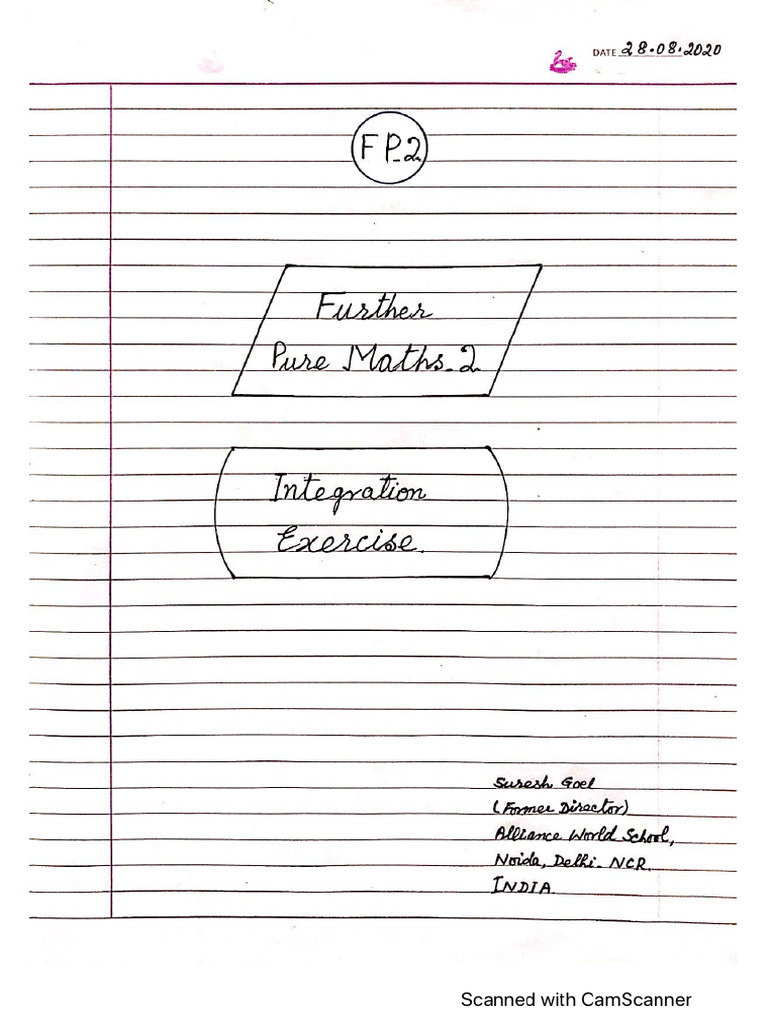 DATE 28.08.2020
FP-2
Further
Pure Maths-2
Integration
Exercise.
Suresh Goel
(Former Director)
Alliance World School,
Noida, Delhi-NCR.
INDIA
Scanned with CamScanner